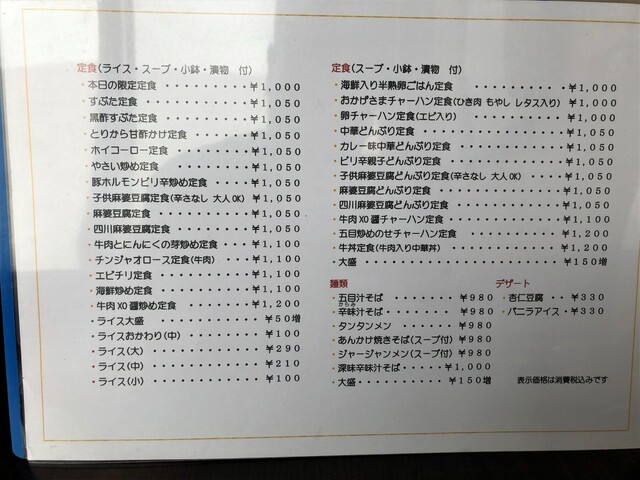 定食(ライス・スープ・小鉢・漬物 付)
・本日の限定定食 ・・・・・・・・・ ¥1,000
・すぶた定食 ・・・・・・・・・・・ ¥1,050
・黒酢すぶた定食 ・・・・・・・・・ ¥1,050
・とりから甘酢かけ定食 ・・・・・・ ¥1,050
・ホイコーロー定食 ・・・・・・・・ ¥1,050
・やさい炒め定食 ・・・・・・・・・ ¥1,050
・豚ホルモンピリ辛炒め定食 ・・・・ ¥1,050
・子供麻婆豆腐定食(辛さなし 大人OK) ¥1,050
・麻婆豆腐定食 ・・・・・・・・・・ ¥1,050
・四川麻婆豆腐定食 ・・・・・・・・ ¥1,050
・牛肉とにんにくの芽炒め定食 ・・・ ¥1,100
・チンジャオロース定食(牛肉) ・・・ ¥1,100
・エビチリ定食 ・・・・・・・・・・ ¥1,100
・海鮮炒め定食 ・・・・・・・・・・ ¥1,100
・牛肉XO醤炒め定食 ・・・・・・・ ¥1,200
・ライス大盛 ・・・・・・・・・・・ ¥50増
・ライスおかわり(中) ・・・・・・・ ¥100
・ライス(大) ・・・・・・・・・・・ ¥290
・ライス(中) ・・・・・・・・・・・ ¥210
・ライス(小) ・・・・・・・・・・・ ¥100
定食(スープ・小鉢・漬物 付)
・海鮮入り半熟卵ごはん定食 ・・・・・・・・・ ・¥1,000
・おかげさまチャーハン定食(ひき肉 もやし レタス入り) ¥1,000
・卵チャーハン定食(エビ入り) ・・・・・・・・ ¥1,000
・中華どんぶり定食 ・・・・・・・・・・・・・ ¥1,050
・カレー味中華どんぶり定食 ・・・・・・・・・ ¥1,050
・ピリ辛親子どんぶり定食 ・・・・・・・・・・ ¥1,050
・子供麻婆豆腐どんぶり定食(辛さなし 大人OK) ・・・ ¥1,050
・麻婆豆腐どんぶり定食 ・・・・・・・・・・・ ¥1,050
・四川麻婆豆腐どんぶり定食 ・・・・・・・・・ ¥1,050
・牛肉XO醤チャーハン定食 ・・・・・・・・・ ¥1,100
・五目炒めのせチャーハン定食 ・・・・・・・・ ¥1,200
・牛丼定食(牛肉入り中華丼) ・・・・・・・・・ ¥1,200
・大盛 ・・・・・・・・・・・・・・・・・・・ ¥150増
麺類
・五目汁そば ・・・・・・・ ¥980
からみ
・辛味汁そば ・・・・・・・ ¥980
・タンタンメン ・・・・・・ ¥980
・あんかけ焼きそば(スープ付) ¥980
・ジャージャンメン(スープ付) ¥980
・深味辛味汁そば・・・・・・ ¥1,000
・大盛 ・・・・・・・・・・ ¥150増
デザート
・杏仁豆腐 ・・ ¥330
・バニラアイス・ ¥330
表示価格は消費税込みです